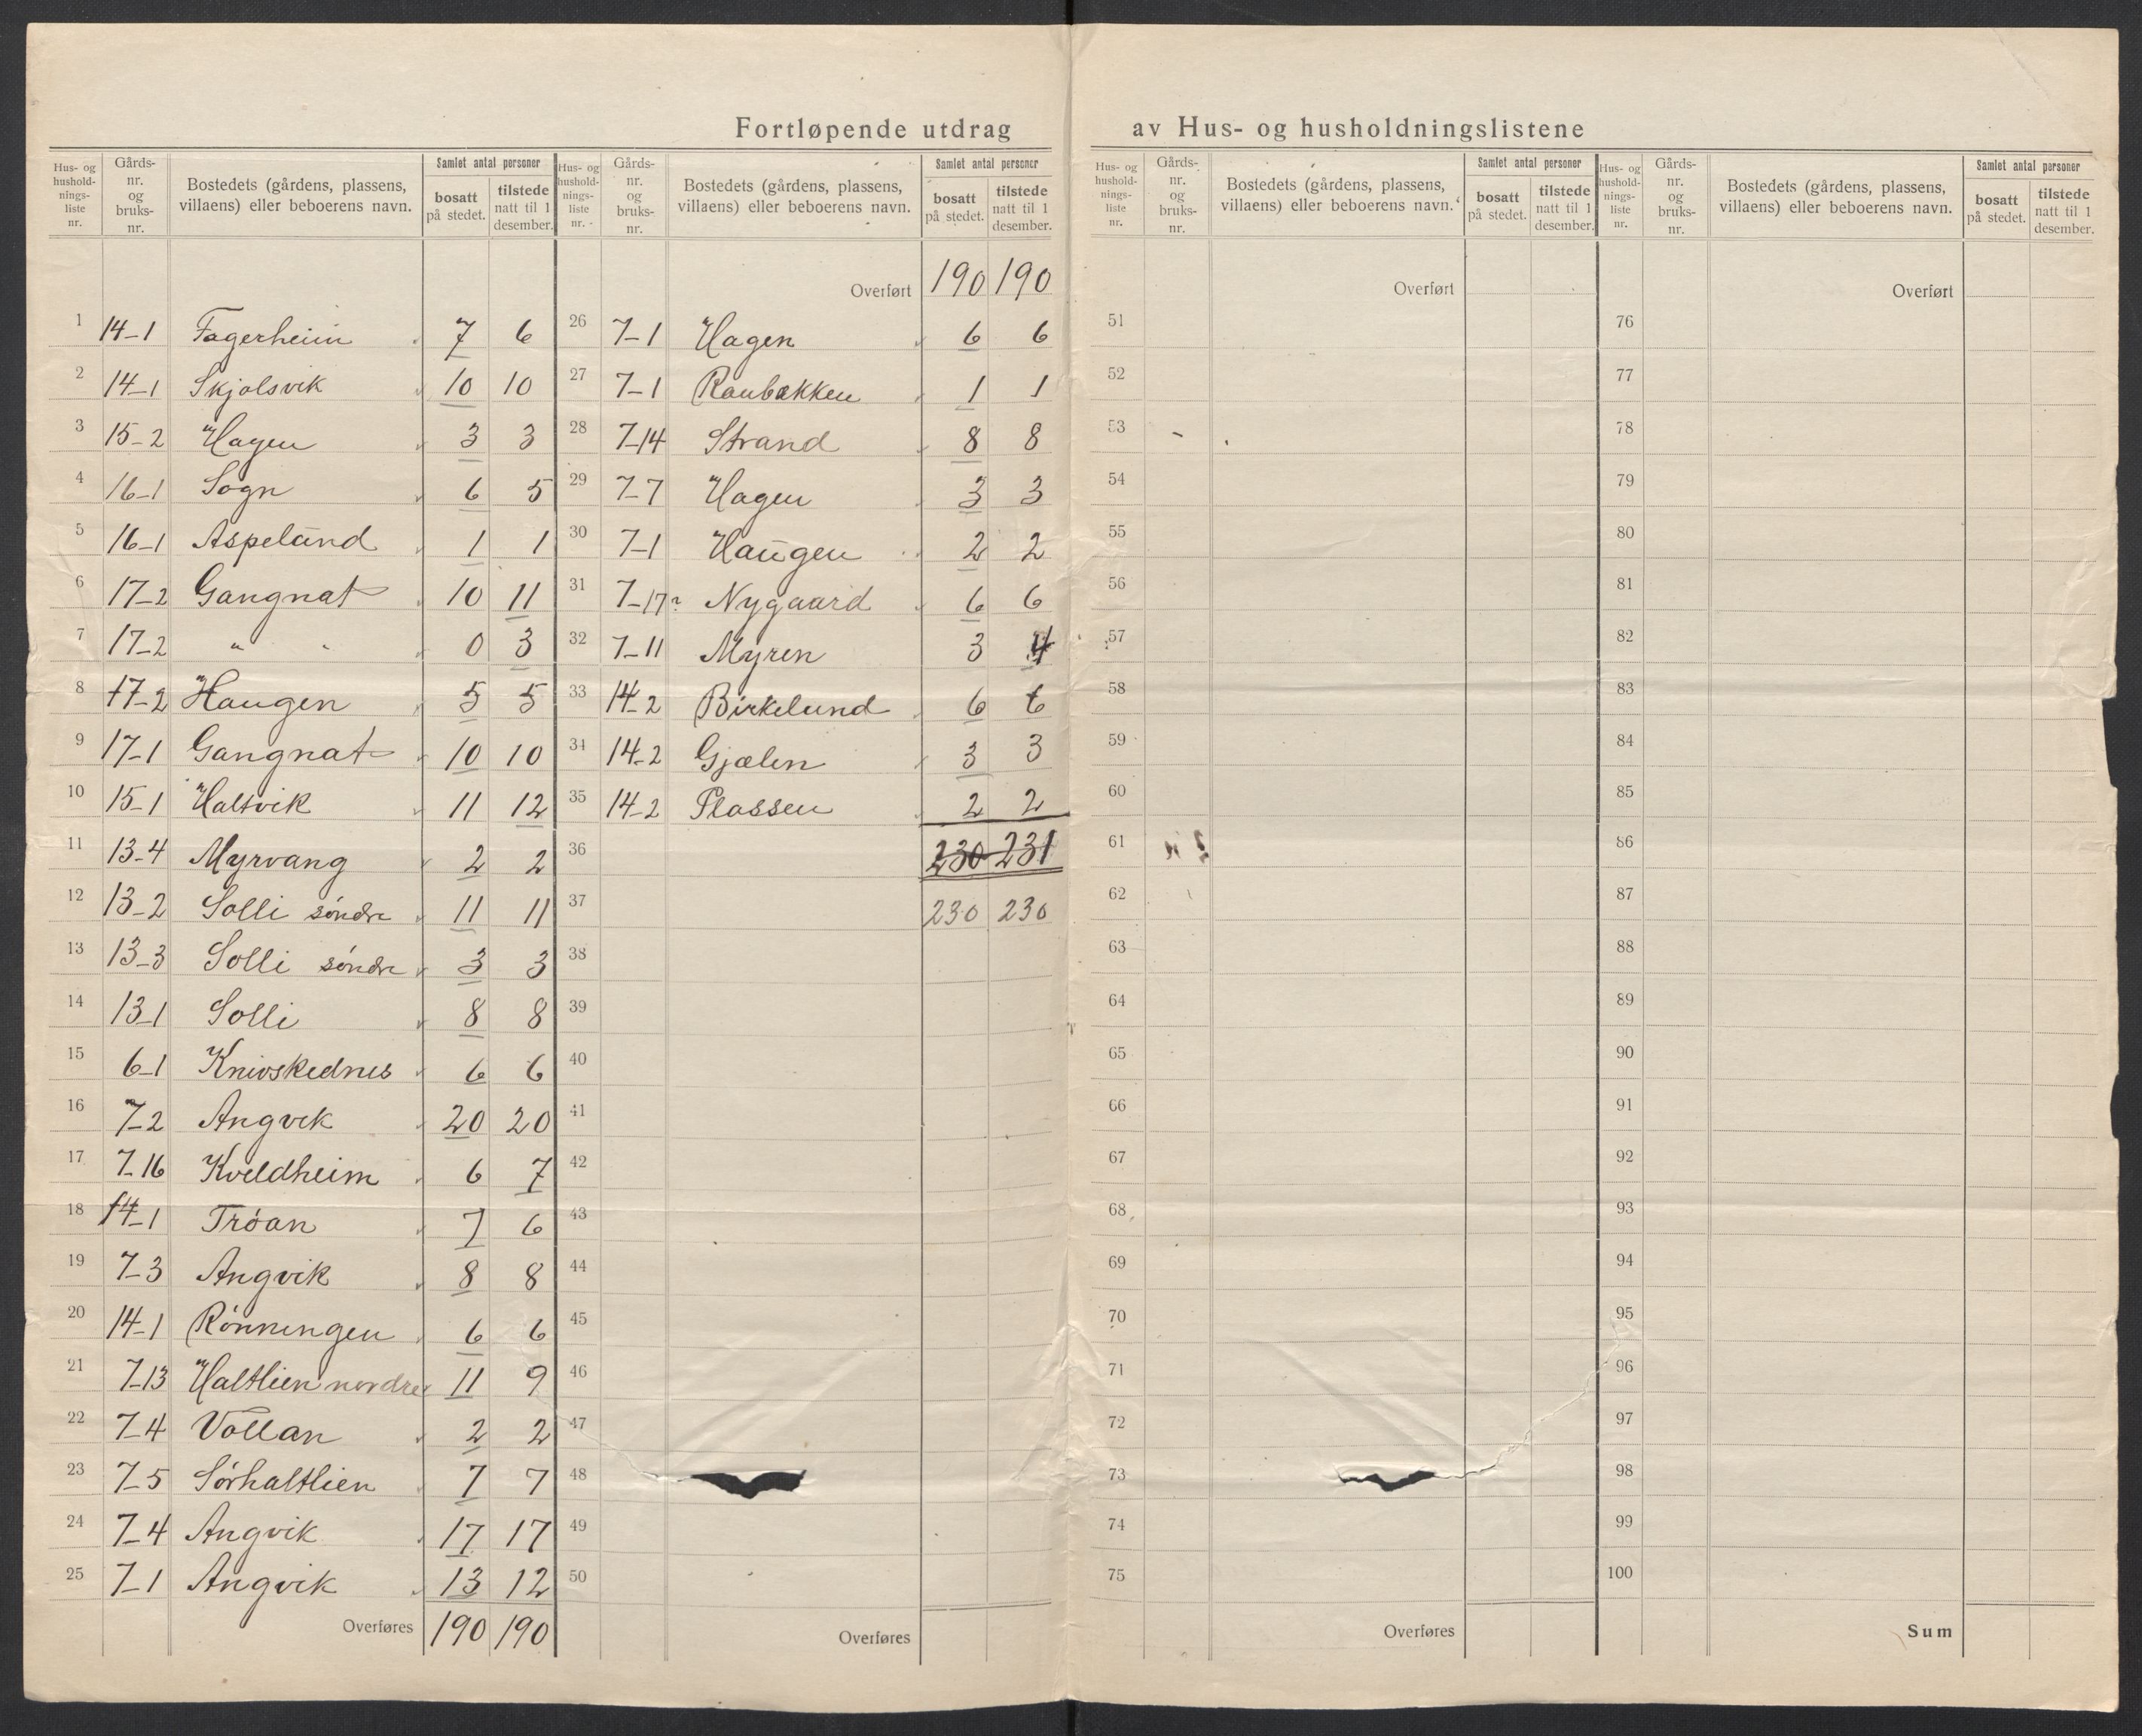 Fortløpende utdrag av Hus- og husholdningslistene
Hus- og hushold-nings-liste nr. Gårds-nr. og bruks-nr. Bostedets (gårdens, plassens, villaens) eller beboerens navn. Samlet antal personer bosatt på stedet. tilstede natt til 1 desember.
1 14-1 Fagerheim 7 6
2 14-1 Skjølsvik 10 10
3 15-2 Hagen 3 3
4 16-1 Sogn 6 5
5 16-1 Aspelund 1 1
6 17-2 Gangnat 10 11
7 17-2 " " 0 3
8 17-2 Haugen 5 5
9 17-1 Gangnat 10 10
10 15-1 Haltvik 11 12
11 13-4 Myrvang 2 2
12 13-2 Solli söndre 11 11
13 13-3 Solli söndre 3 3
14 13-1 Solli 8 8
15 6-1 Knivskednes 6 6
16 7-2 Angvik 20 20
17 7-16 Kveldheim 6 7
18 14-1 Tróan 7 6
19 7-3 Angvik 8 8
20 14-1 Rónningen 6 6
21 7-13 Haltlien nordre 11 9
22 7-4 Vollan 2 2
23 7-5 Sórhaltlien 7 7
24 7-4 Angvik 17 17
25 7-1 Angvik 13 12
Overføres 190 190
Hus- og hushold-nings-liste nr. Gårds-nr. og bruks-nr. Bostedets (gårdens, plassens, villaens) eller beboerens navn. Samlet antal personer bosatt på stedet. tilstede natt til 1 desember.
Overført 190 190
26 7-1 Hagen 6 6
27 7-1 Raubækken 1 1
28 7-14 Strand 8 8
29 7-7 Hagen 3 3
30 7-1 Haugen 2 2
31 7-17? Nygaard 6 6
32 7-11 Myren 3 4
33 14-2 Birkelund 6 6
34 14-2 Gjælen 3 3
35 14-2 Plassen 2 2
36 230 231
37 230 230
38
39
40
41
42
43
44
45
46
47
48
49
50
Overføres
Hus- og hushold-nings-liste nr. Gårds-nr. og bruks-nr. Bostedets (gårdens, plassens, villaens) eller beboerens navn. Samlet antal personer bosatt på stedet. tilstede natt til 1 desember.
Overført
51
52
53
54
55
56
57
58
59
60
61
62
63
64
65
66
67
68
69
70
71
72
73
74
75
Overføres
Hus- og hushold-nings-liste nr. Gårds-nr. og bruks-nr. Bostedets (gårdens, plassens, villaens) eller beboerens navn. Samlet antal personer bosatt på stedet. tilstede natt til 1 desember.
Overført
76
77
78
79
80
81
82
83
84
85
86
87
88
89
90
91
92
93
94
95
96
97
98
99
100
Sum